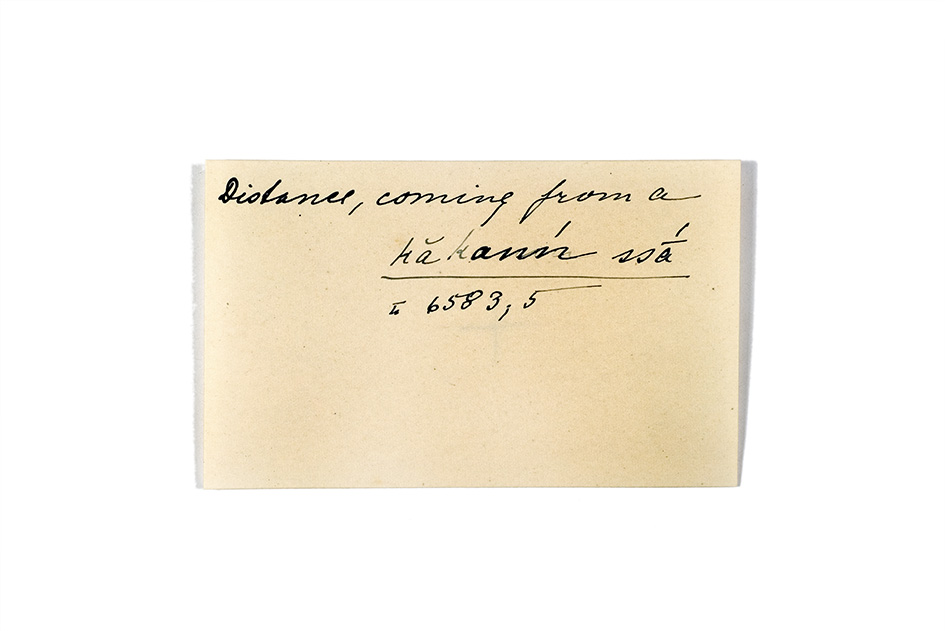 Distance, coming from a
kăkanı́n ssá
II 6583,5